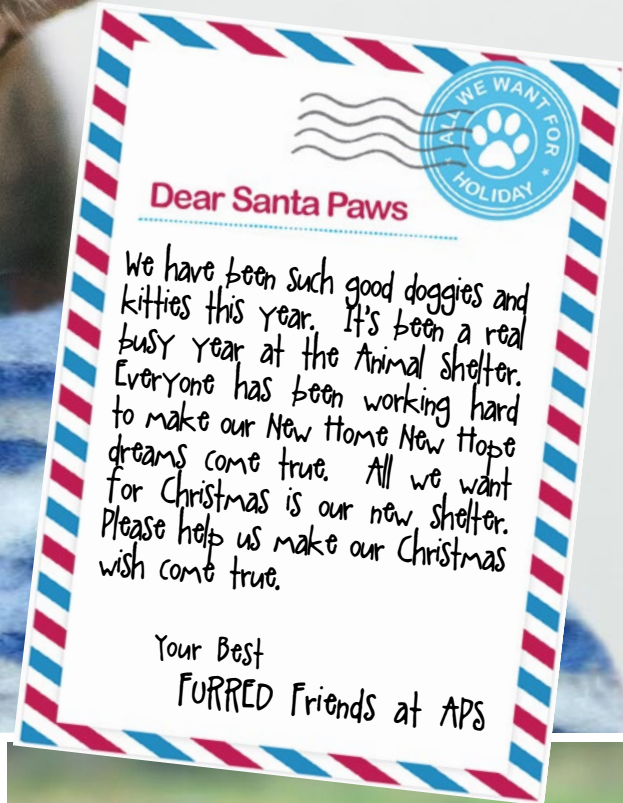 ALL WE WANT FOR
HOLIDAY
Dear Santa Paws
We have been such good doggies and
kitties this year. It's been a real
busy year at the Animal Shelter.
Everyone has been working hard
to make our New Home New Hope
dreams come true. All we want
for Christmas is our new shelter.
Please help us make our Christmas
wish come true.
Your Best
FURRED Friends at APS